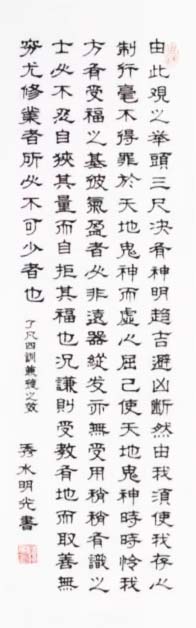 由此觀之舉頭三尺決有神明趨吉避凶斷然由我須使我存心
制行毫不得罪於天地鬼神而虛心屈己使天地鬼神時時憐我
方有受福之基彼氣盈者必非遠器縱发亦無受用稍稍有識之
士必不忍自狹其量而自拒其福也況謙則受教有地而取善無
窮尤修業者所必不可少者也
了凡四訓謙德之效
秀水明光書